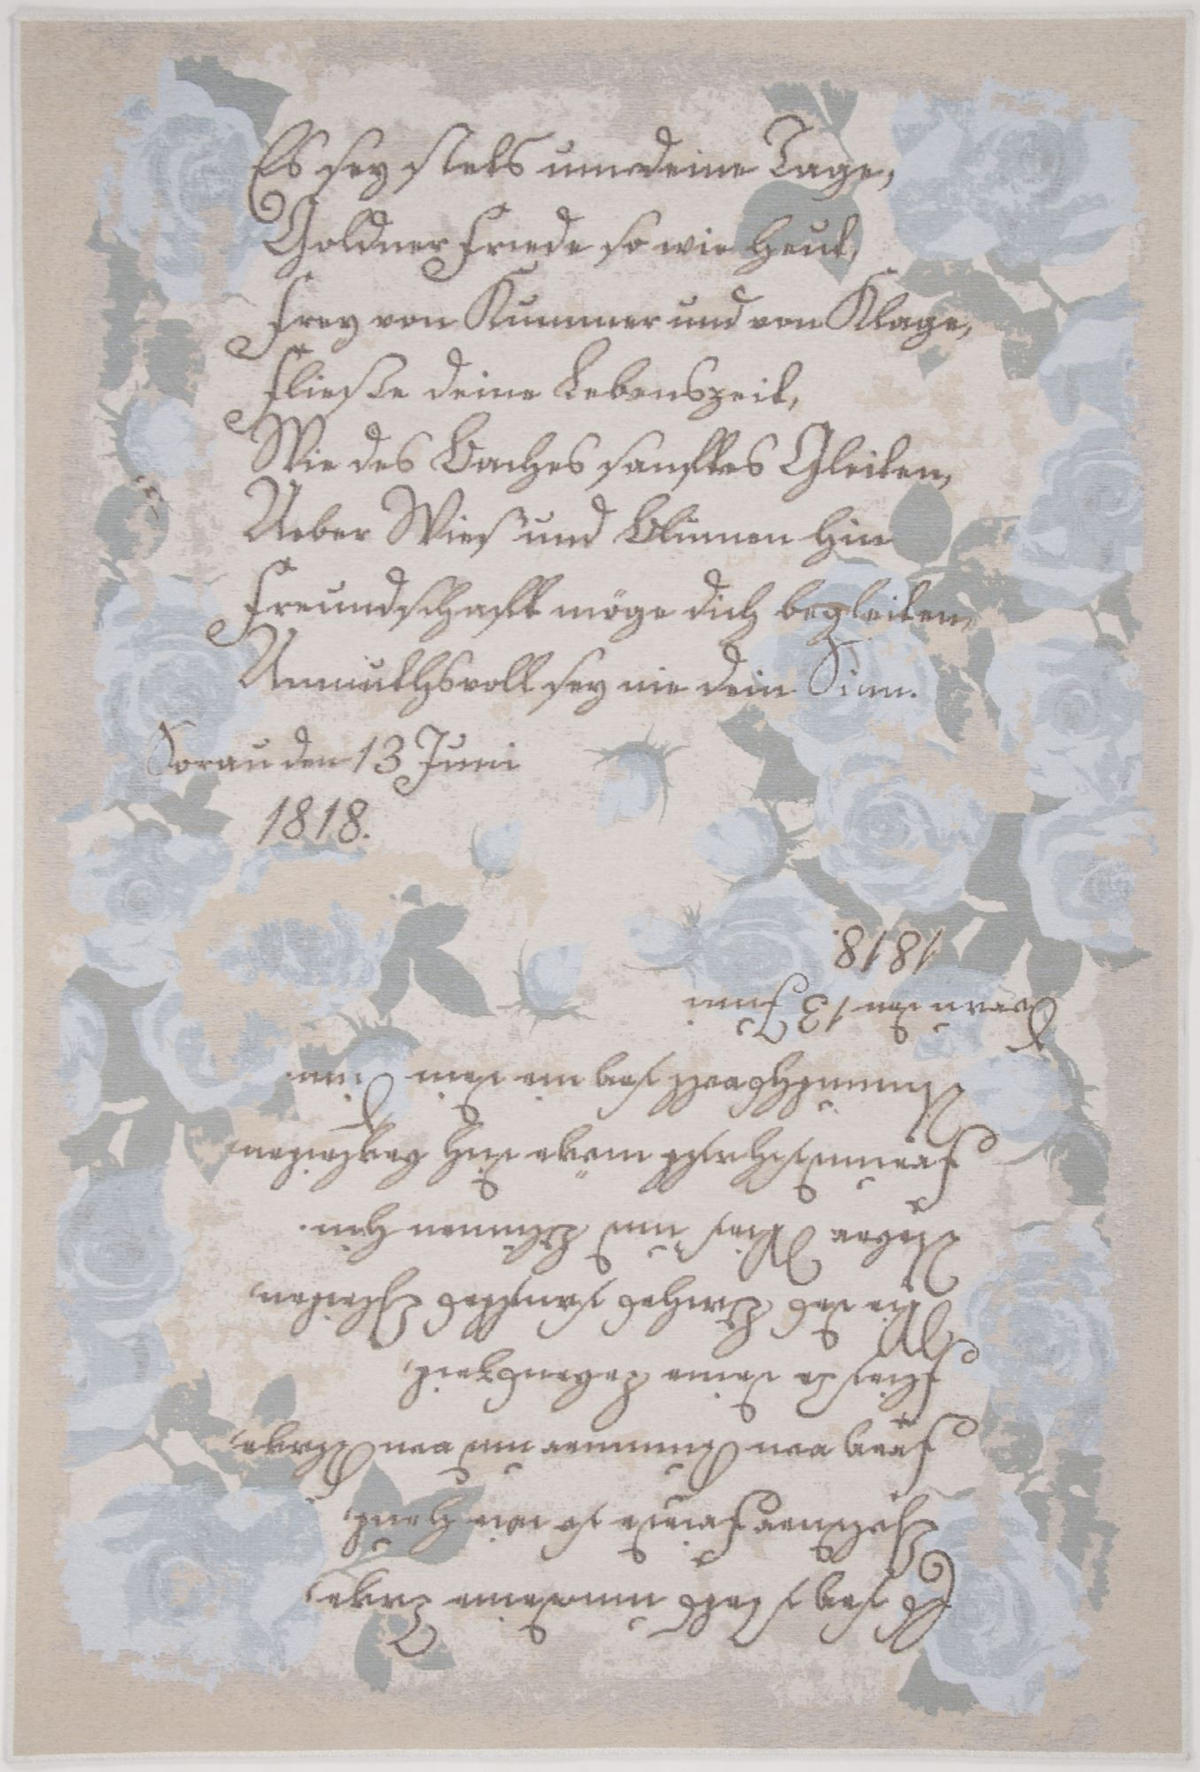 Es sey stets um deine Tage,
Goldner Friede so wie heut,
Frey von Kummer und von Klage,
Fließe deine Lebenszeit,
Wie des Baches sanftes Gleiten,
Ueber Wies' und Blumen hin
Freundschafft möge dich begleiten,
Anmuthsvoll sey nie dein Sinn.
Sorau den 13 Juni
1818.
Es sey stets um deine Tage,
Goldner Friede so wie heut,
Frey von Kummer und von Klage,
Fließe deine Lebenszeit,
Wie des Baches sanftes Gleiten,
Ueber Wies' und Blumen hin.
Freundschafft möge dich begleiten,
Anmuthsvoll sey nie dein Sinn.
Sorau den 13 Juni
1818.